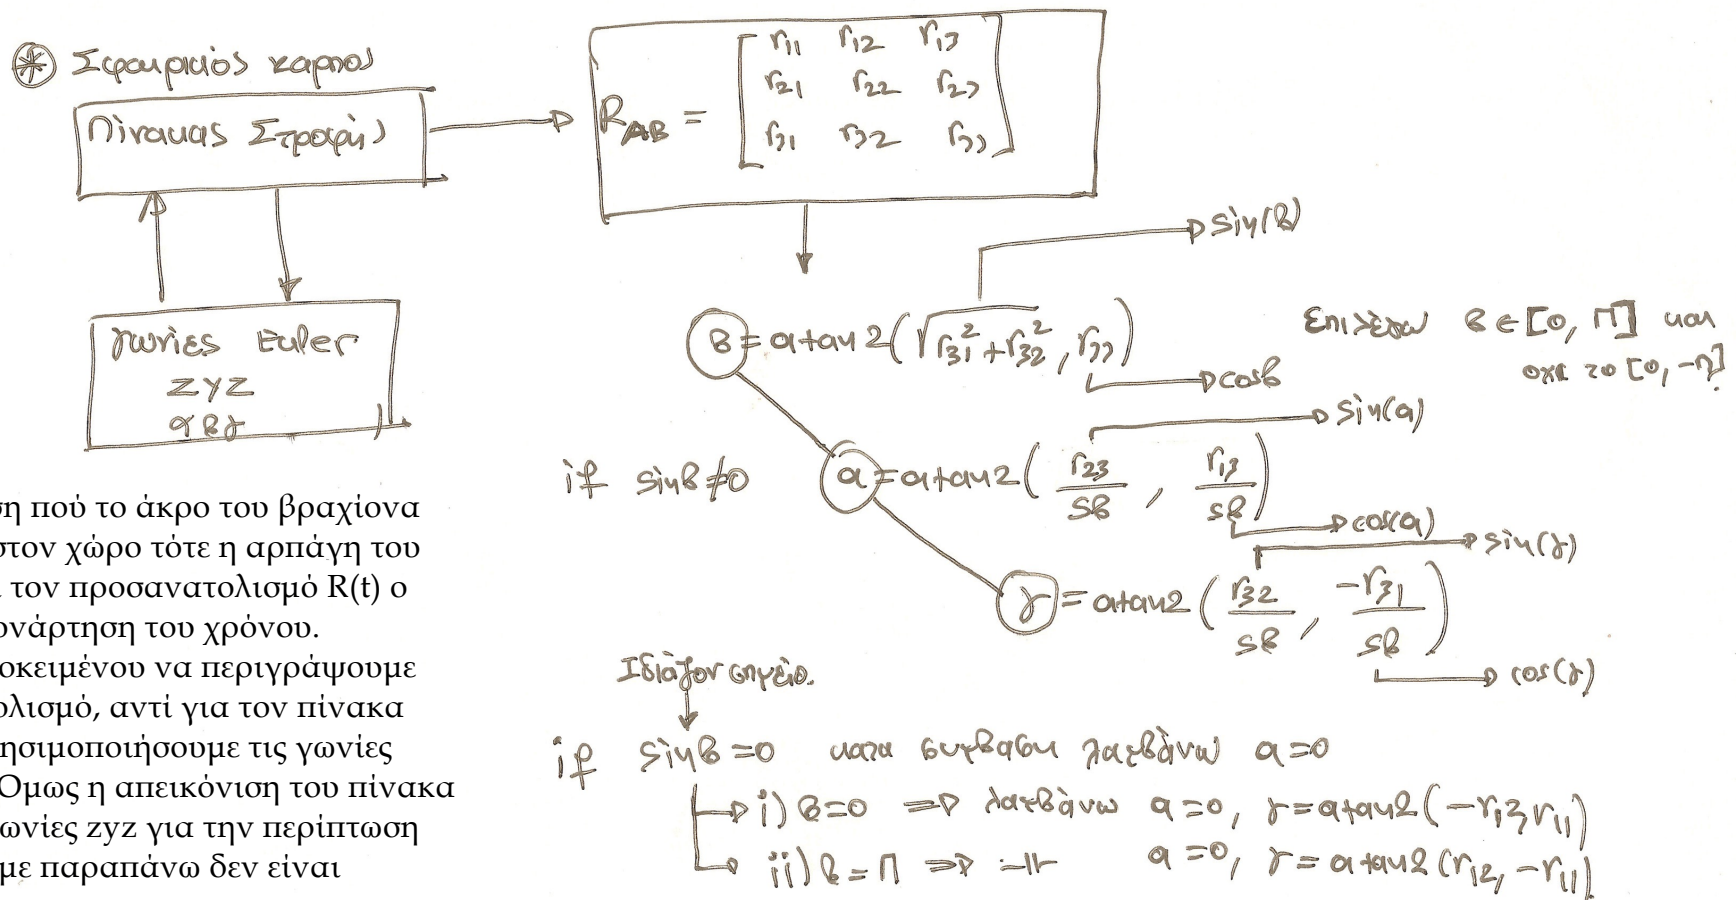 * Σφαιρικός καρπός
Πίνακας Στροφής
R_AB = [ r11 r12 r13
r21 r22 r23
r31 r32 r33 ]
γωνίες Euler
ZYZ
αβγ
sin(β)
β = atan2(√(r31² + r32²), r33)
cosβ
Επιλέγω β ∈ [0, Π] και
οχι το [0, -Π]
if sinβ≠0
α = atan2( r23/sβ , r13/sβ )
sin(α)
cos(α)
γ = atan2( r32/sβ , -r31/sβ )
sin(γ)
cos(γ)
Ιδιάζον σημείο.
if sinβ=0 κατα συμβαση λαμβάνω α=0
i) β=0 => λαμβάνω α=0, γ=atan2(-r12, r11)
ii) β=Π => -||- α=0, γ=atan2(r12, -r11)
ση πού το άκρο του βραχίονα
στον χώρο τότε η αρπάγη του
ι τον προσανατολισμό R(t) ο
ονάρτηση του χρόνου.
οκειμένου να περιγράψουμε
ολισμό, αντί για τον πίνακα
ησιμοποιήσουμε τις γωνίες
Όμως η απεικόνιση του πίνακα
ωνίες zyz για την περίπτωση
με παραπάνω δεν είναι